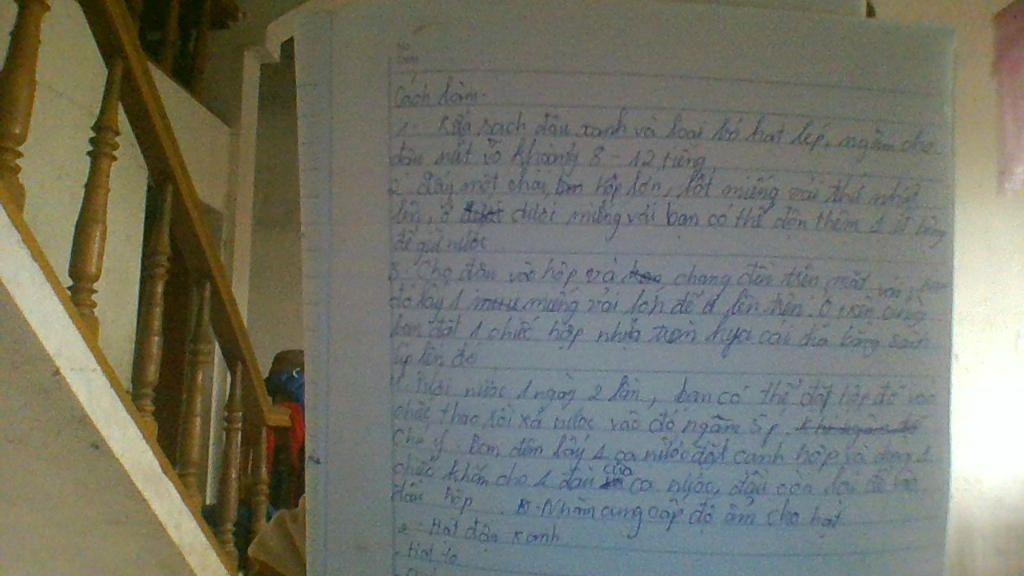 Cách làm.
1. Rửa sạch đậu xanh và loại bỏ hạt lép, ngâm cho
đậu nứt vỏ khoảng 8 - 12 tiếng
2. Lấy một chai, lon hộp lớn, lót miếng vải thứ nhất
lên, ở dưới miếng vải bạn có thể độn thêm 1 ít bông
để giữ nước
3. Cho đậu vào hộp và chang đều trên mặt vải,
đó lấy 1 miếng vải lớn để lên trên. Ở trên cùng
bạn đặt 1 chiếc hộp nhựa tròn hoặc cái đĩa bằng sành
úp lên đó
4. Tưới nước 1 ngày 2 lần, bạn có thể đặt hộp đó vào
chiếc thao rồi xả nước vào đó ngâm 5p.
Chú ý. Ban đêm lấy 1 ca nước đặt cạnh hộp và dùng 1
chiếc khăn cho 1 đầu của ca nước, đầu còn lại để vào
đầu hộp. Nhằm cung cấp độ ẩm cho hạt
- Hạt đậu xanh